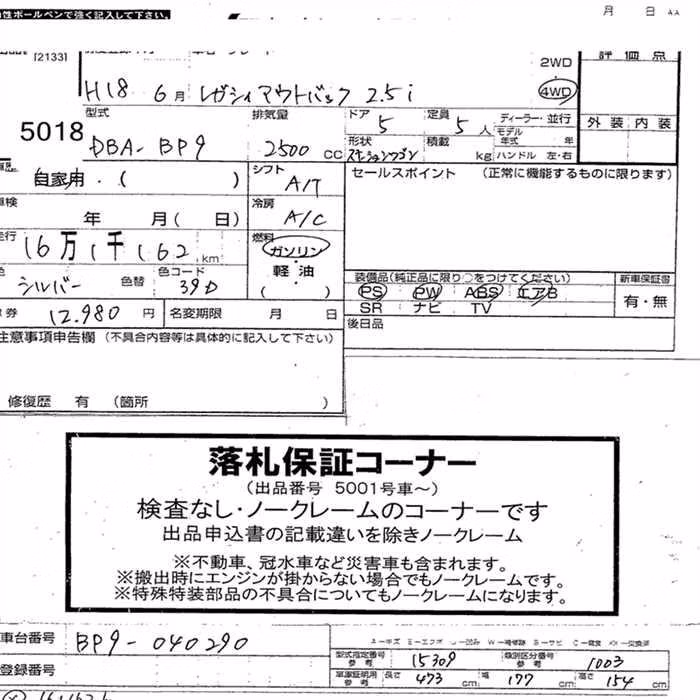 性ボールペンで強く記入して下さい。
月 日
[2133]
評価点
2WD
H18 6月 レガシィアウトバック 2.5i 4WD
型式 排気量 ドア 定員 ディーラー・並行
外装 内装
5018 DBA-BP9 2500 CC 5 5人 モデル年式 年
形状 ステーションワゴン 積載 kg ハンドル 左・右
自家用・( ) シフト A/T セールスポイント (正常に機能するものに限ります)
車検 年 月( 日) 冷房 A/C
走行 16万1千162 km 燃料 ガソリン・軽油 ( )
色 シルバー 色替 色コード 39D
装備品(純正品に限り○をつけてください) 新車保証書
PS PW ABS エアB 有・無
SR ナビ TV
券 12.980 円 名変期限 月 日 後日品
注意事項申告欄 (不具合内容等は具体的に記入して下さい)
修復歴 有 (箇所 )
落札保証コーナー
(出品番号 5001号車〜)
検査なし・ノークレームのコーナーです
出品申込書の記載違いを除きノークレーム
※不動車、冠水車など災害車も含まれます。
※搬出時にエンジンが掛からない場合でもノークレームです。
※特殊特装部品の不具合についてもノークレームになります。
車台番号 BP9-040290
型式指定番号 参考 15309 類別区分番号 参考 1003
登録番号 車庫証明用 参考 長さ 473 cm 幅 177 cm 高さ 154 cm